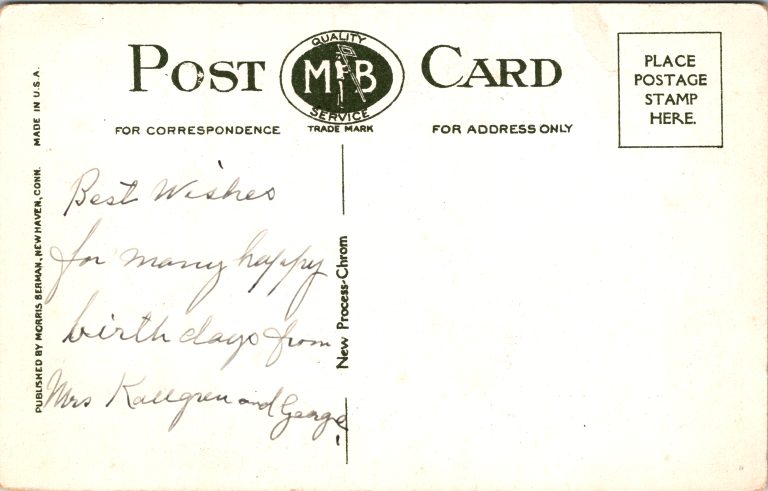 POST CARD
QUALITY
M B
SERVICE
TRADE MARK
FOR CORRESPONDENCE
FOR ADDRESS ONLY
PLACE
POSTAGE
STAMP
HERE.
MADE IN U.S.A.
PUBLISHED BY MORRIS BERMAN, NEW HAVEN, CONN.
New Process-Chrom
Best Wishes
for many happy
birthdays from
Mrs Kallgren and George